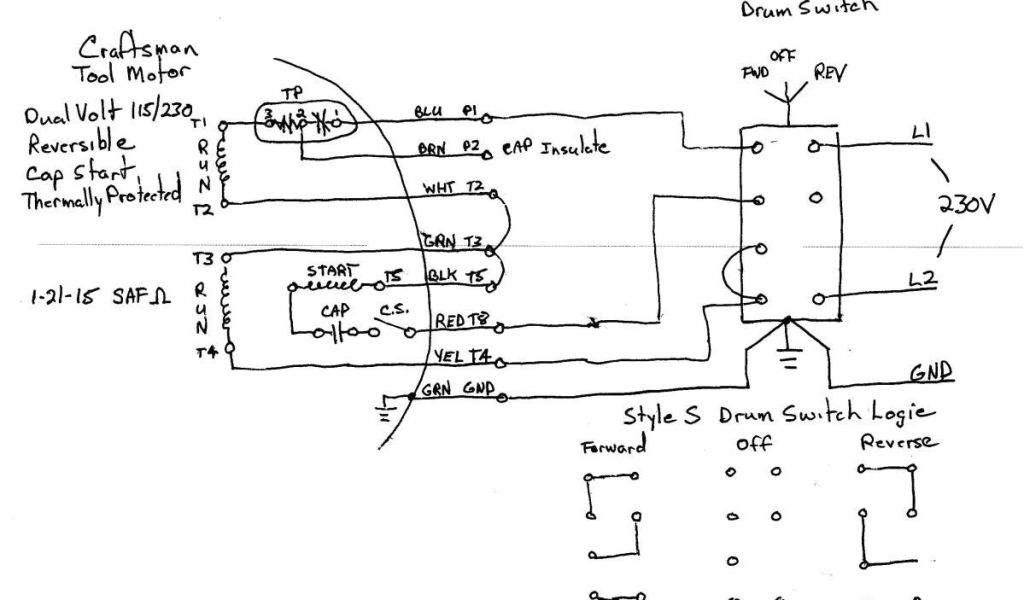 Drum Switch
Craftsman
Tool Motor
Dual Volt 115/230
Reversible
Cap Start
Thermally Protected
1-21-15 SAFΩ
TP
3 2 1
T1
RUN
T2
T3
RUN
T4
START T5
CAP C.S.
BLU P1
BRN P2 CAP Insulate
WHT T2
GRN T3
BLK T5
RED T8
YEL T4
GRN GND
FWD OFF REV
L1
230V
L2
GND
Style S Drum Switch Logic
Forward Off Reverse